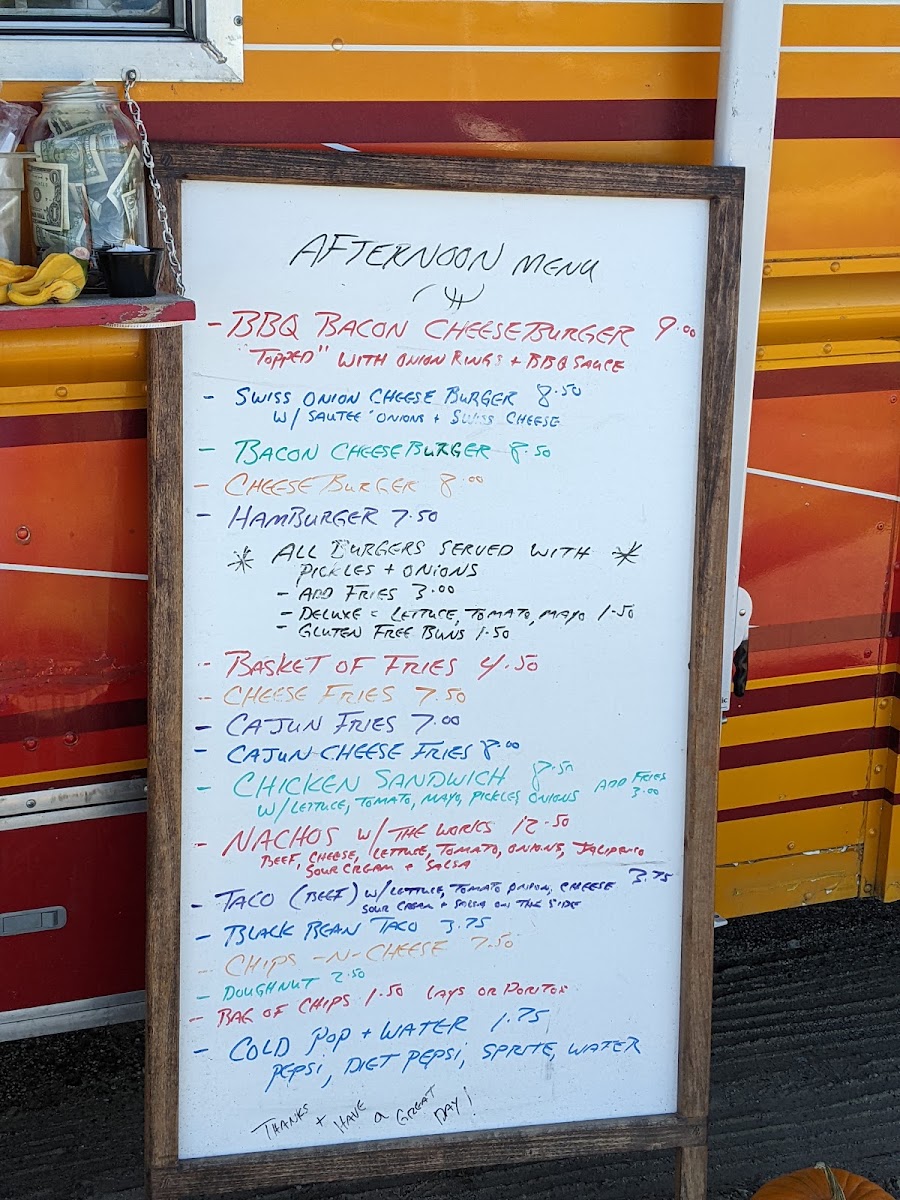 AFTERNOON MENU
- BBQ BACON CHEESEBURGER 9.00
"TOPPED" WITH ONION RINGS + BBQ SAUCE
- SWISS ONION CHEESE BURGER 8.50
W/ SAUTEE' ONIONS + SWISS CHEESE
- BACON CHEESEBURGER 8.50
- CHEESEBURGER 8.00
- HAMBURGER 7.50
* ALL BURGERS SERVED WITH *
PICKLES + ONIONS
- ADD FRIES 3.00
- DELUXE = LETTUCE, TOMATO, MAYO 1.50
- GLUTEN FREE BUNS 1.50
- BASKET OF FRIES 4.50
- CHEESE FRIES 7.50
- CAJUN FRIES 7.00
- CAJUN-CHEESE FRIES 8.00
- CHICKEN SANDWICH 8.50 ADD FRIES
W/ LETTUCE, TOMATO, MAYO, PICKLES, ONIONS 3.00
- NACHOS W/ THE WORKS 12.50
BEEF, CHEESE, LETTUCE, TOMATO, ONIONS, JALIPENO
SOUR CREAM + SALSA
- TACO (BEEF) W/ LETTUCE, TOMATO, ONION, CHEESE 3.75
SOUR CREAM + SALSA ON THE SIDE
- BLACK BEAN TACO 3.75
- CHIPS-N-CHEESE 7.50
- DOUGHNUT 2.50
- BAG OF CHIPS 1.50 LAYS OR DORITOS
- COLD POP + WATER 1.75
PEPSI, DIET PEPSI, SPRITE, WATER
THANKS + HAVE A GREAT DAY!